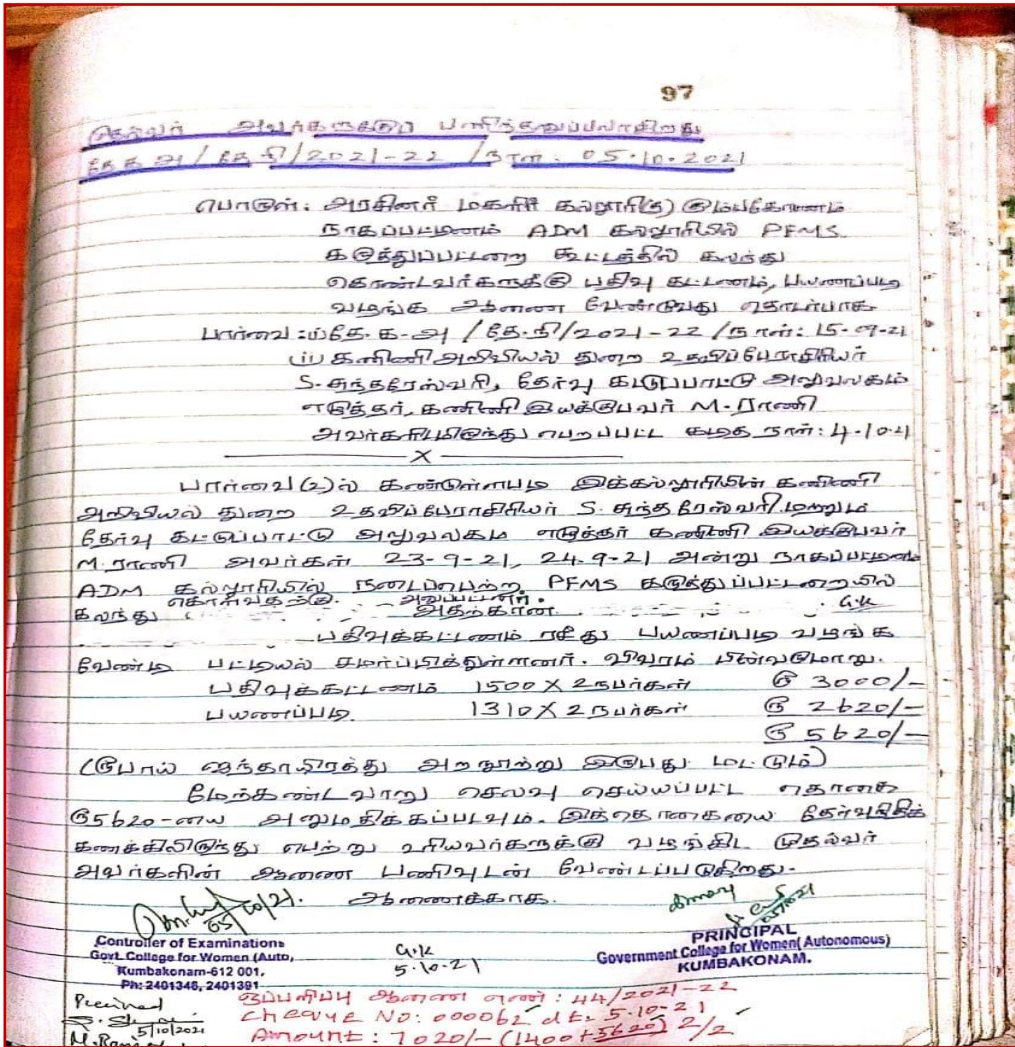 97
முதல்வர் அவர்களுக்குப் பணிந்தனுப்பலாகிறது
தே.க.அ / தே.நி/2021-22 / நாள்: 05.10.2021
பொருள்: அரசினர் மகளிர் கல்லூரி(த) கும்பகோணம்
நாகப்பட்டினம் ADM கல்லூரியில் PFMS
கருத்துப்பட்டறை கூட்டத்தில் கலந்து
கொண்டவர்களுக்கு பதிவு கட்டணம், பயணப்படி
வழங்க ஆணை வேண்டுவது தொடர்பாக
பார்வை: தே.க.அ / தே.நி/2021-22 / நாள்: 15-09-21
கணினி அறிவியல் துறை உதவிப்பேராசிரியர்
S. சுந்தரேஸ்வரி, தேர்வு கட்டுப்பாட்டு அலுவலகம்
எழுத்தர், கணினி இயக்குபவர் M. ராணி
அவர்களிடமிருந்து பெறப்பட்ட கடித நாள்: 4.10.21
X
பார்வை (2)ல் கண்டுள்ளபடி இக்கல்லூரியின் கணினி
அறிவியல் துறை உதவிப்பேராசிரியர் S. சுந்தரேஸ்வரி மற்றும்
தேர்வு கட்டுப்பாட்டு அலுவலகம் எழுத்தர் கணினி இயக்குபவர்
M. ராணி அவர்கள் 23-9-21, 24.9-21 அன்று நாகப்பட்டினம்
ADM கல்லூரியில் நடைபெற்ற PFMS கருத்துப்பட்டறையில்
கலந்து கொள்வதற்கு அனுப்பட்டனர். அதற்கான G.K
பதிவுக்கட்டணம் ரசீது பயணப்படி வழங்க
வேண்டி பட்டியல் சமர்ப்பித்துள்ளனர். விவரம் பின்வருமாறு.
பதிவுக்கட்டணம் 1500 X 2 நபர்கள் ரூ 3000/-
பயணப்படி 1310 X 2 நபர்கள் ரூ 2620/-
ரூ 5620/-
(ரூபாய் ஐந்தாயிரத்து அறநூற்று இருபது மட்டும்)
மேற்கண்டவாறு செலவு செய்யப்பட்ட தொகை
ரூ5620-யை அனுமதிக்கப்படவும். இத்தொகையை தேர்வுநிதிக்
கணக்கிலிருந்து பெற்று உரியவர்களுக்கு வழங்கிட முதல்வர்
அவர்களின் ஆணை பணிவுடன் வேண்டப்படுகிறது.
ஆணைக்காக.
05/10/21.
Controller of Examinations
Govt. College for Women (Auto,
Kumbakonam-612 001.
Ph: 2401346, 2401391
G.K
5.10.21
05/10/21
PRINCIPAL
Government College for Women( Autonomous)
KUMBAKONAM.
Received
5/10/2021
M. Rani
ஒப்பளிப்பு ஆணை எண்: 44/2021-22
Cheque No: 000062 dt. 5.10.21
Amount: 7020/- (1400+5620) 2/2